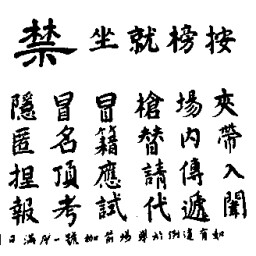 按榜就坐禁
夾帶入闈
場內傳遞
槍替請代
冒籍應試
冒名頂考
隱匿捏報
如有違例於舉場前枷號一月滿日